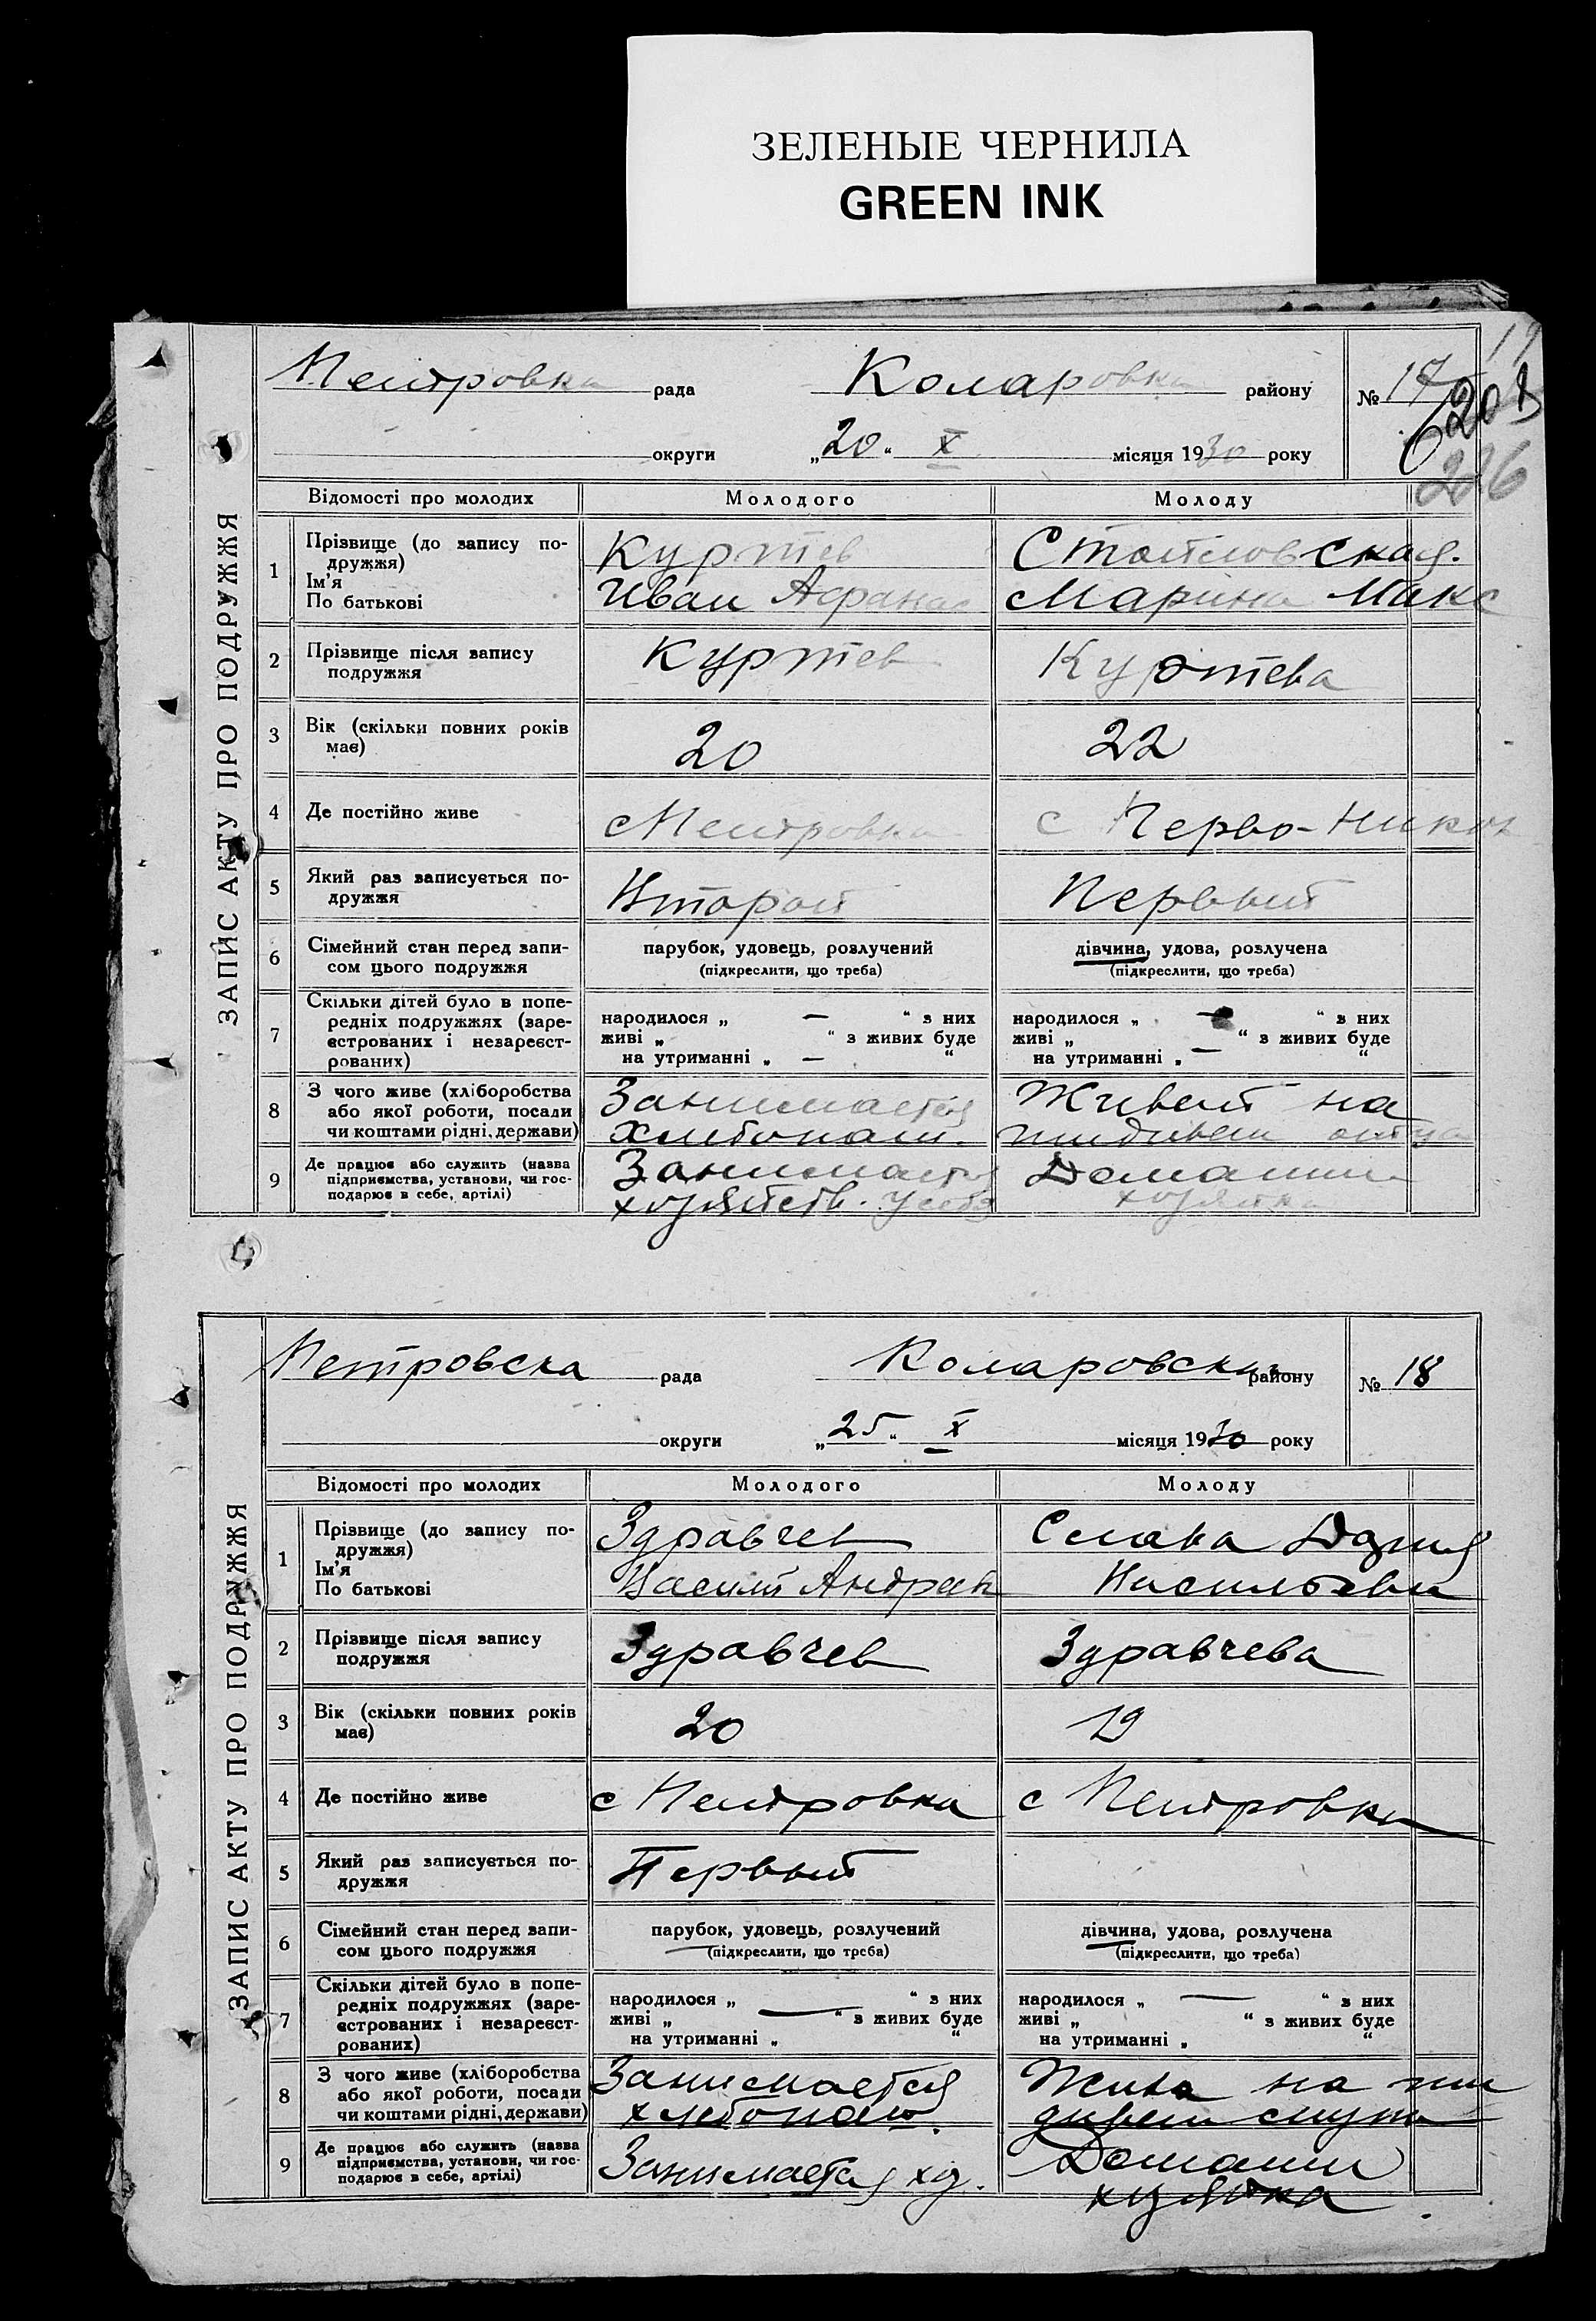 ЗЕЛЕНЫЕ ЧЕРНИЛА
GREEN INK
ЗАПИС АКТУ ПРО ПОДРУЖЖЯ
Петровка рада Коларовка району № 17
округи „20“ X місяця 1930 року
208
226
Відомості про молодих Молодого Молоду
1 Прізвище (до запису по-
дружжя)
Ім’я
По батькові
Куртев
Иван Афанас
Стоиловская
Марина Макс
2 Прізвище після запису
подружжя
Куртев Куртева
3 Вік (скільки повних років
має)
20 22
4 Де постійно живе с Петровка с Перво-Никол
5 Який раз записується по-
дружжя
Второй Первый
6 Сімейний стан перед запи-
сом цього подружжя
парубок, удовець, розлучений
(підкреслити, що треба)
дівчина, удова, розлучена
(підкреслити, що треба)
7 Скільки дітей було в попе-
редніх подружжях (заре-
єстрованих і незареєст-
рованих)
народилося „ — “ з них
живі „ “ з живих буде
на утриманні „ — “
народилося „ — “ з них
живі „ “ з живих буде
на утриманні „ — “
8 З чого живе (хліборобства
або якої роботи, посади
чи коштами рідні, держави)
Занимается
хлебопаш.
Живет на
иждивен отца
9 Де працює або служить (назва
підприємства, установи, чи гос-
подарює в себе, артілі)
Занимается
хозяйств. у себя
Домашн
хозяйка
ЗАПИС АКТУ ПРО ПОДРУЖЖЯ
Петровска рада Коларовски району № 18
округи „25“ X місяця 1930 року
Відомості про молодих Молодого Молоду
1 Прізвище (до запису по-
дружжя)
Ім’я
По батькові
Здравчев
Василий Андрее
Слава
Васильевн
2 Прізвище після запису
подружжя
Здравчев Здравчева
3 Вік (скільки повних років
має)
20 19
4 Де постійно живе с Петровка с Петровка
5 Який раз записується по-
дружжя
Первый
6 Сімейний стан перед запи-
сом цього подружжя
парубок, удовець, розлучений
(підкреслити, що треба)
дівчина, удова, розлучена
(підкреслити, що треба)
7 Скільки дітей було в попе-
редніх подружжях (заре-
єстрованих і незареєст-
рованих)
народилося „ — “ з них
живі „ “ з живих буде
на утриманні „ “
народилося „ — “ з них
живі „ “ з живих буде
на утриманні „ “
8 З чого живе (хліборобства
або якої роботи, посади
чи коштами рідні, держави)
Занимается
хлебопаш.
на иж
дивен мужа
9 Де працює або служить (назва
підприємства, установи, чи гос-
подарює в себе, артілі)
Занимается хоз.
Домашн
хозяйка